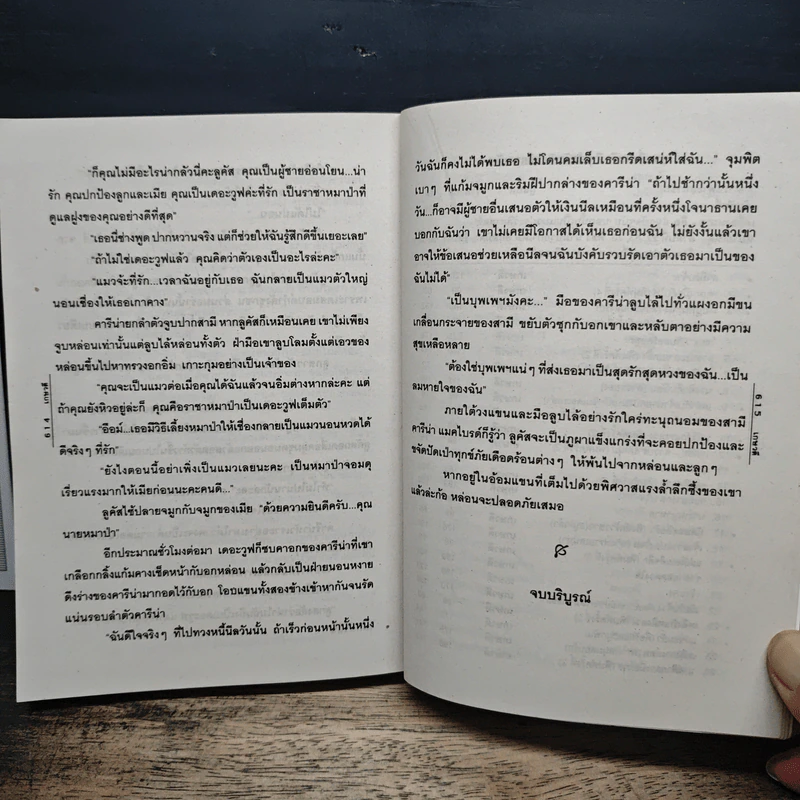 "ก็คุณไม่มีอะไรน่ากลัวนี่คะลูคัส คุณเป็นผู้ชายอ่อนโยน...น่า
รัก คุณปกป้องลูกและเมีย คุณเป็นเดอะวูฟค่ะที่รัก เป็นราชาหมาป่าที่
ดูแลฝูงของคุณอย่างดีที่สุด"
"เธอนี่ช่างพูด ปากหวานจริง แต่ก็ช่วยให้ฉันรู้สึกดีขึ้นเยอะเลย"
"ถ้าไม่ใช่เดอะวูฟแล้ว คุณคิดว่าตัวเองเป็นอะไรล่ะคะ"
"แมวจ้ะที่รัก...เวลาฉันอยู่กับเธอ ฉันกลายเป็นแมวตัวใหญ่
นอนเชื่องให้เธอเกาคาง"
คารีน่ายกลำตัวจูบปากสามี หากลูคัสก็เหมือนเคย เขาไม่เพียง
จูบหล่อนเท่านั้นแต่ลูบไล้หล่อนทั้งตัว ฝ่ามือเขาลูบโลมตั้งแต่เอวของ
หล่อนขึ้นไปหาทรวงอกอิ่ม เกาะกุมอย่างเป็นเจ้าของ
"คุณจะเป็นแมวต่อเมื่อคุณได้ฉันแล้วจนอิ่มต่างหากล่ะคะ แต่
ถ้าคุณยังหิวอยู่ล่ะก็ คุณคือราชาหมาป่าเป็นเดอะวูฟเต็มตัว"
"อืออ์...เธอมีวิธีเลี้ยงหมาป่าให้เชื่องกลายเป็นแมวนอนหวดได้
ดีจริงๆ ที่รัก"
"ยังไงตอนนี้อย่าเพิ่งเป็นแมวเลยนะคะ เป็นหมาป่าจอมดุ
เรี่ยวแรงมากให้เมียก่อนนะคะคนดี..."
ลูคัสใช้ปลายจมูกกับจมูกของเมีย "ด้วยความยินดีครับ...คุณ
นายหมาป่า"
อีกประมาณชั่วโมงต่อมา เดอะวูฟก็ซบคาอกของคารีน่าที่เขา
เกลือกกลิ้งแก้มคางเช็ดหน้ากับอกหล่อน แล้วกลับเป็นฝ่ายนอนหงาย
ดึงร่างของคารีน่ามากอดไว้กับอก โอบแขนทั้งสองข้างเข้าหากันจนรัด
แน่นรอบลำตัวคารีน่า
"ฉันดีใจจริงๆ ที่ไปทวงหนี้นีลวันนั้น ถ้าเร็วก่อนหน้านั้นหนึ่ง
614 เกษวดี
วันฉันก็คงไม่ได้พบเธอ ไม่โดนคมเล็บเธอกรีดเสน่ห์ใส่ฉัน..." จุมพิต
เบาๆ ที่แก้มจมูกและริมฝีปากล่างของคารีน่า "ถ้าไปช้ากว่านั้นหนึ่ง
วัน...ก็อาจมีผู้ชายอื่นเสนอตัวให้เงินนีลเหมือนที่ครั้งหนึ่งโจนาธานเคย
บอกกับฉันว่า เขาไม่เคยมีโอกาสได้เห็นเธอก่อนฉัน ไม่ยังงั้นแล้วเขา
อาจให้ข้อเสนอช่วยเหลือนีลจนฉันบังคับรวบรัดเอาตัวเธอมาเป็นของ
ฉันไม่ได้"
"เป็นบุพเพฯมังคะ..." มือของคารีน่าลูบไล้ไปทั่วแผงอกมีขน
เกลื่อนกระจายของสามี ขยับตัวซุกกับอกเขาและหลับตาอย่างมีความ
สุขเหลือหลาย
"ต้องใช่บุพเพฯแน่ๆ ที่ส่งเธอมาเป็นสุดรักสุดหวงของฉัน...เป็น
ลมหายใจของฉัน"
ภายใต้วงแขนและมือลูบไล้อย่างรักใคร่ทะนุถนอมของสามี
คารีน่า แมคไบรด์ก็รู้ว่า ลูคัสจะเป็นภูผาแข็งแกร่งที่จะคอยปกป้องและ
ขจัดปัดเป่าทุกข์ภัยเดือดร้อนต่างๆ ให้พ้นไปจากหล่อนและลูกๆ
หากอยู่ในอ้อมแขนที่เต็มไปด้วยพิศวาสแรงล้ำลึกซึ้งของเขา
แล้วล่ะก้อ หล่อนจะปลอดภัยเสมอ
จบบริบูรณ์
615 เกษวดี